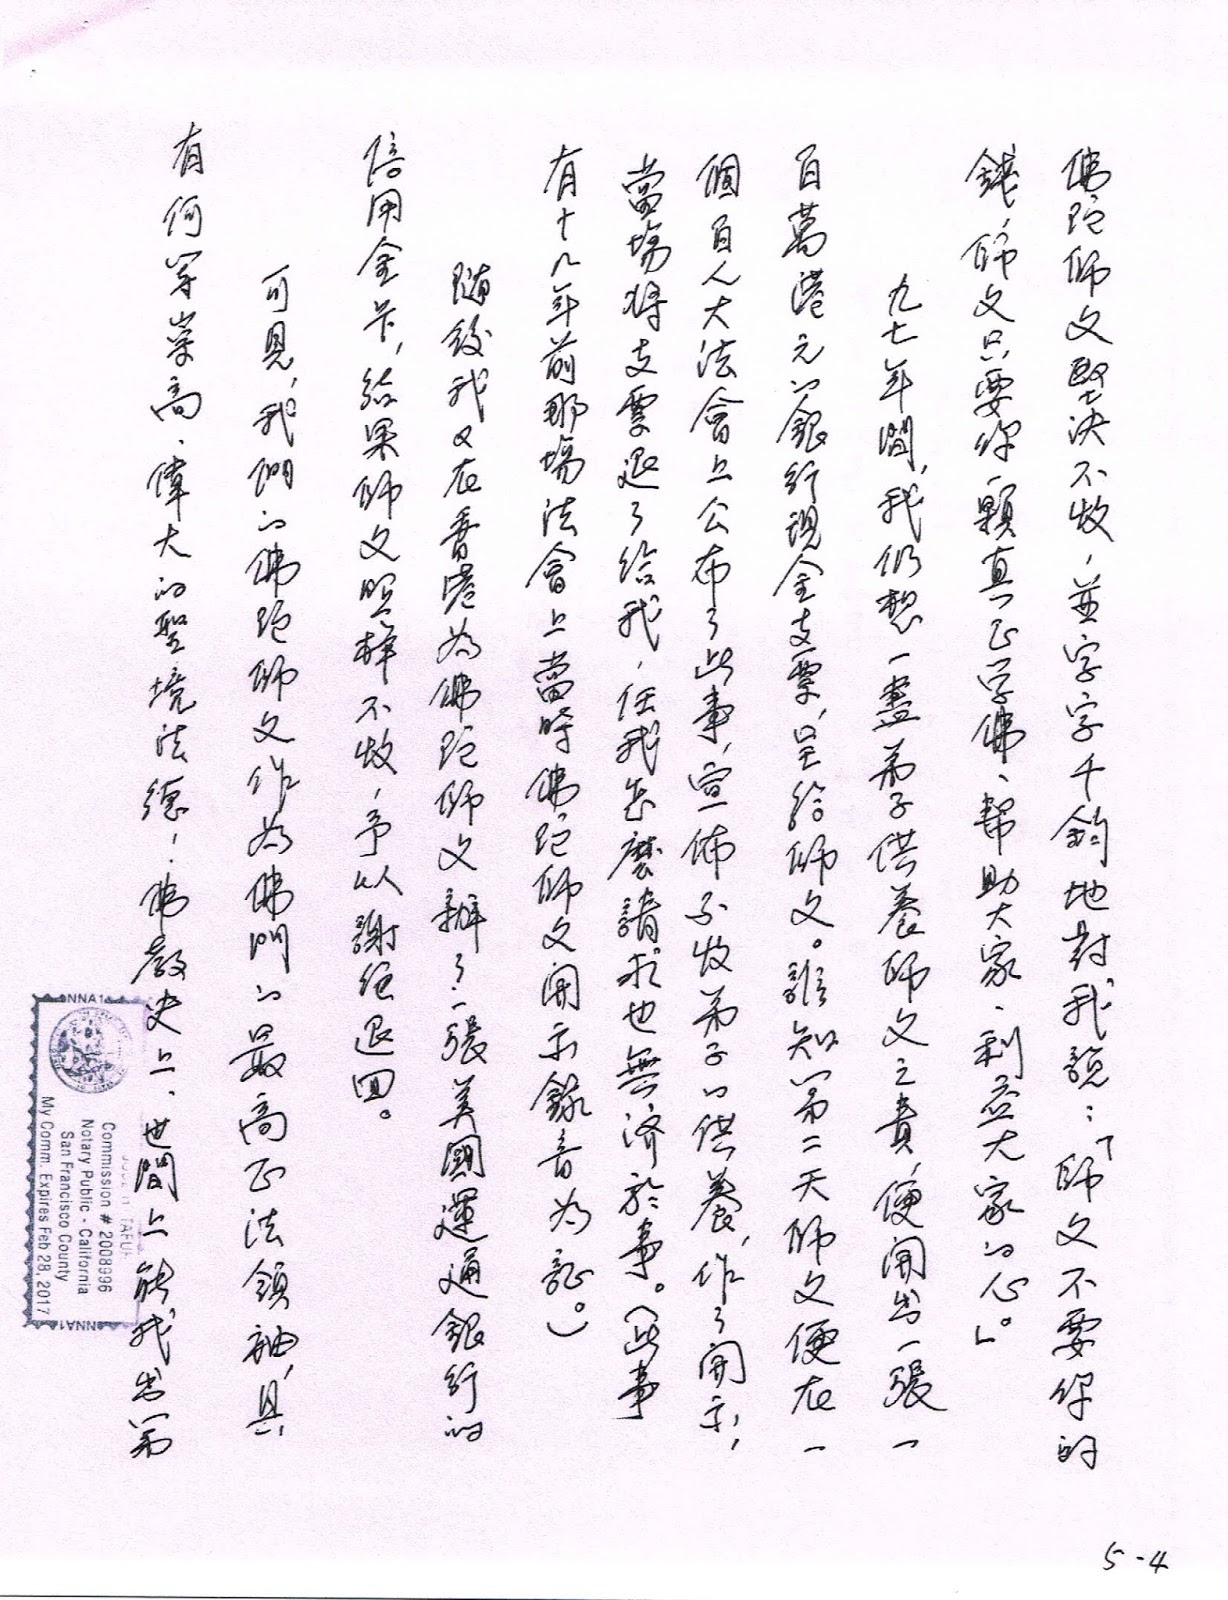 佛陀師父堅決不收，並字字千鈞地對我說：「師父不要你的
錢，師父只要你一顆真正學佛、幫助大家、利益大家的心。」
九七年間，我仍想一盡弟子供養師父之責，便開出一張一
百萬港元的銀行現金支票，呈給師父。誰知第二天師父便在一
個百人大法會上公布了此事，宣佈不收弟子的供養，作了開示，
當場將支票退了給我，任我怎麼請求也無济於事。（此事
有十九年前那場法會上當時佛陀師父開示錄音為証。）
隨後我又在香港為佛陀師父辦了一張美國運通銀行的
信用金卡，結果師父照樣不收，予以謝絕退回。
可見，我們的佛陀師父作為佛門的最高正法領袖，具
有何等崇高、偉大的聖境法德！佛教史上、世間上能找出第
NNA1
Commission # 2008996
Notary Public - California
San Francisco County
My Comm. Expires Feb 28, 2017
NNA1
5-4